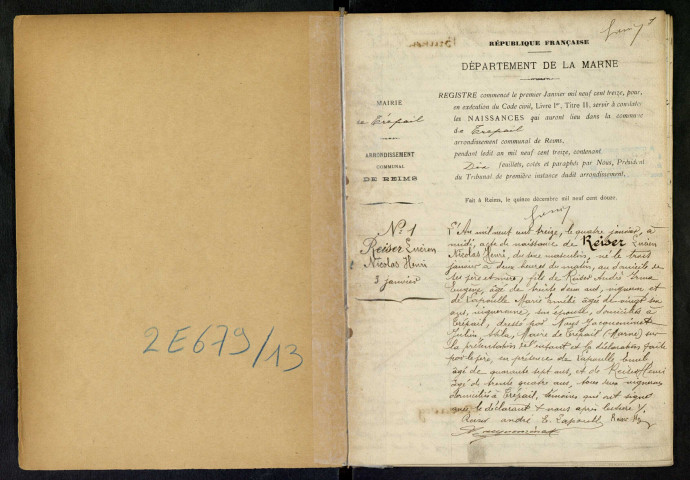 2E679/13
RÉPUBLIQUE FRANÇAISE
DÉPARTEMENT DE LA MARNE
MAIRIE
de Trépail
ARRONDISSEMENT
COMMUNAL
DE REIMS
REGISTRE commencé le premier Janvier mil neuf cent treize, pour,
en exécution du Code civil, Livre Ier, Titre II, servir à constater
les NAISSANCES qui auront lieu dans la commune
de Trépail
arrondissement communal de Reims,
pendant ledit an mil neuf cent treize, contenant
Dix feuillets, cotés et paraphés par Nous, Président
du Tribunal de première instance dudit arrondissement.
Fait à Reims, le quinze décembre mil neuf cent douze.
No 1
Reiser Lucien
Nicolas Henri
3 janvier
L'An mil neuf cent treize, le quatre janvier, à
midi, acte de naissance de Reiser Lucien
Nicolas Henri, du sexe masculin, né le trois
janvier à deux heures du matin, au domicile de
ses père et mère, fils de Reiser André
Eugène, âgé de trente deux ans, vigneron et
de Lapoulle Marie âgée de vingt
ans, vigneronne, son épouse, domiciliés à
Trépail, dressé par Nous
Julien, Maire de Trépail (Marne) sur
la présentation de l'enfant et la déclaration faite
par le père, en présence de Lapoulle Emile
âgé de quarante sept ans, et de Reiser Henri
âgé de trente quatre ans, tous deux vignerons
domiciliés à Trépail, témoins qui ont signé
avec le déclarant et nous après lecture
Reiser André E. Lapoulle Reiser Hy